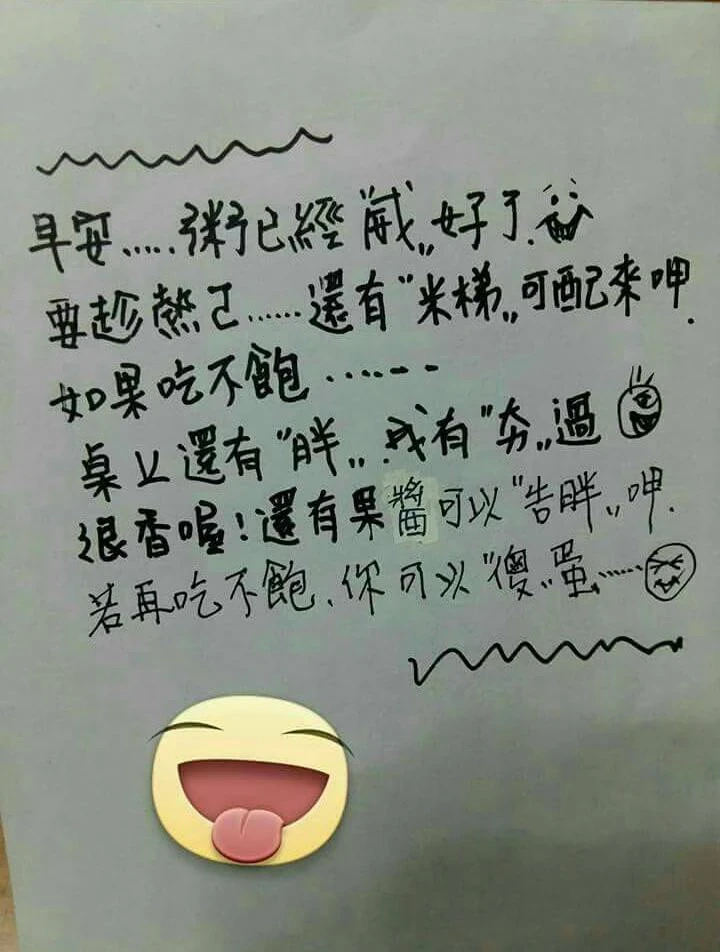 早安.....粥已經"葳"好了.
要趁熱ㄛ......還有"米梯"可配來呷.
如果吃不飽......
桌上還有"胖"我有"夯"過
很香喔!還有果醬可以"告胖"呷.
若再吃不飽.你可以"傻"蛋......